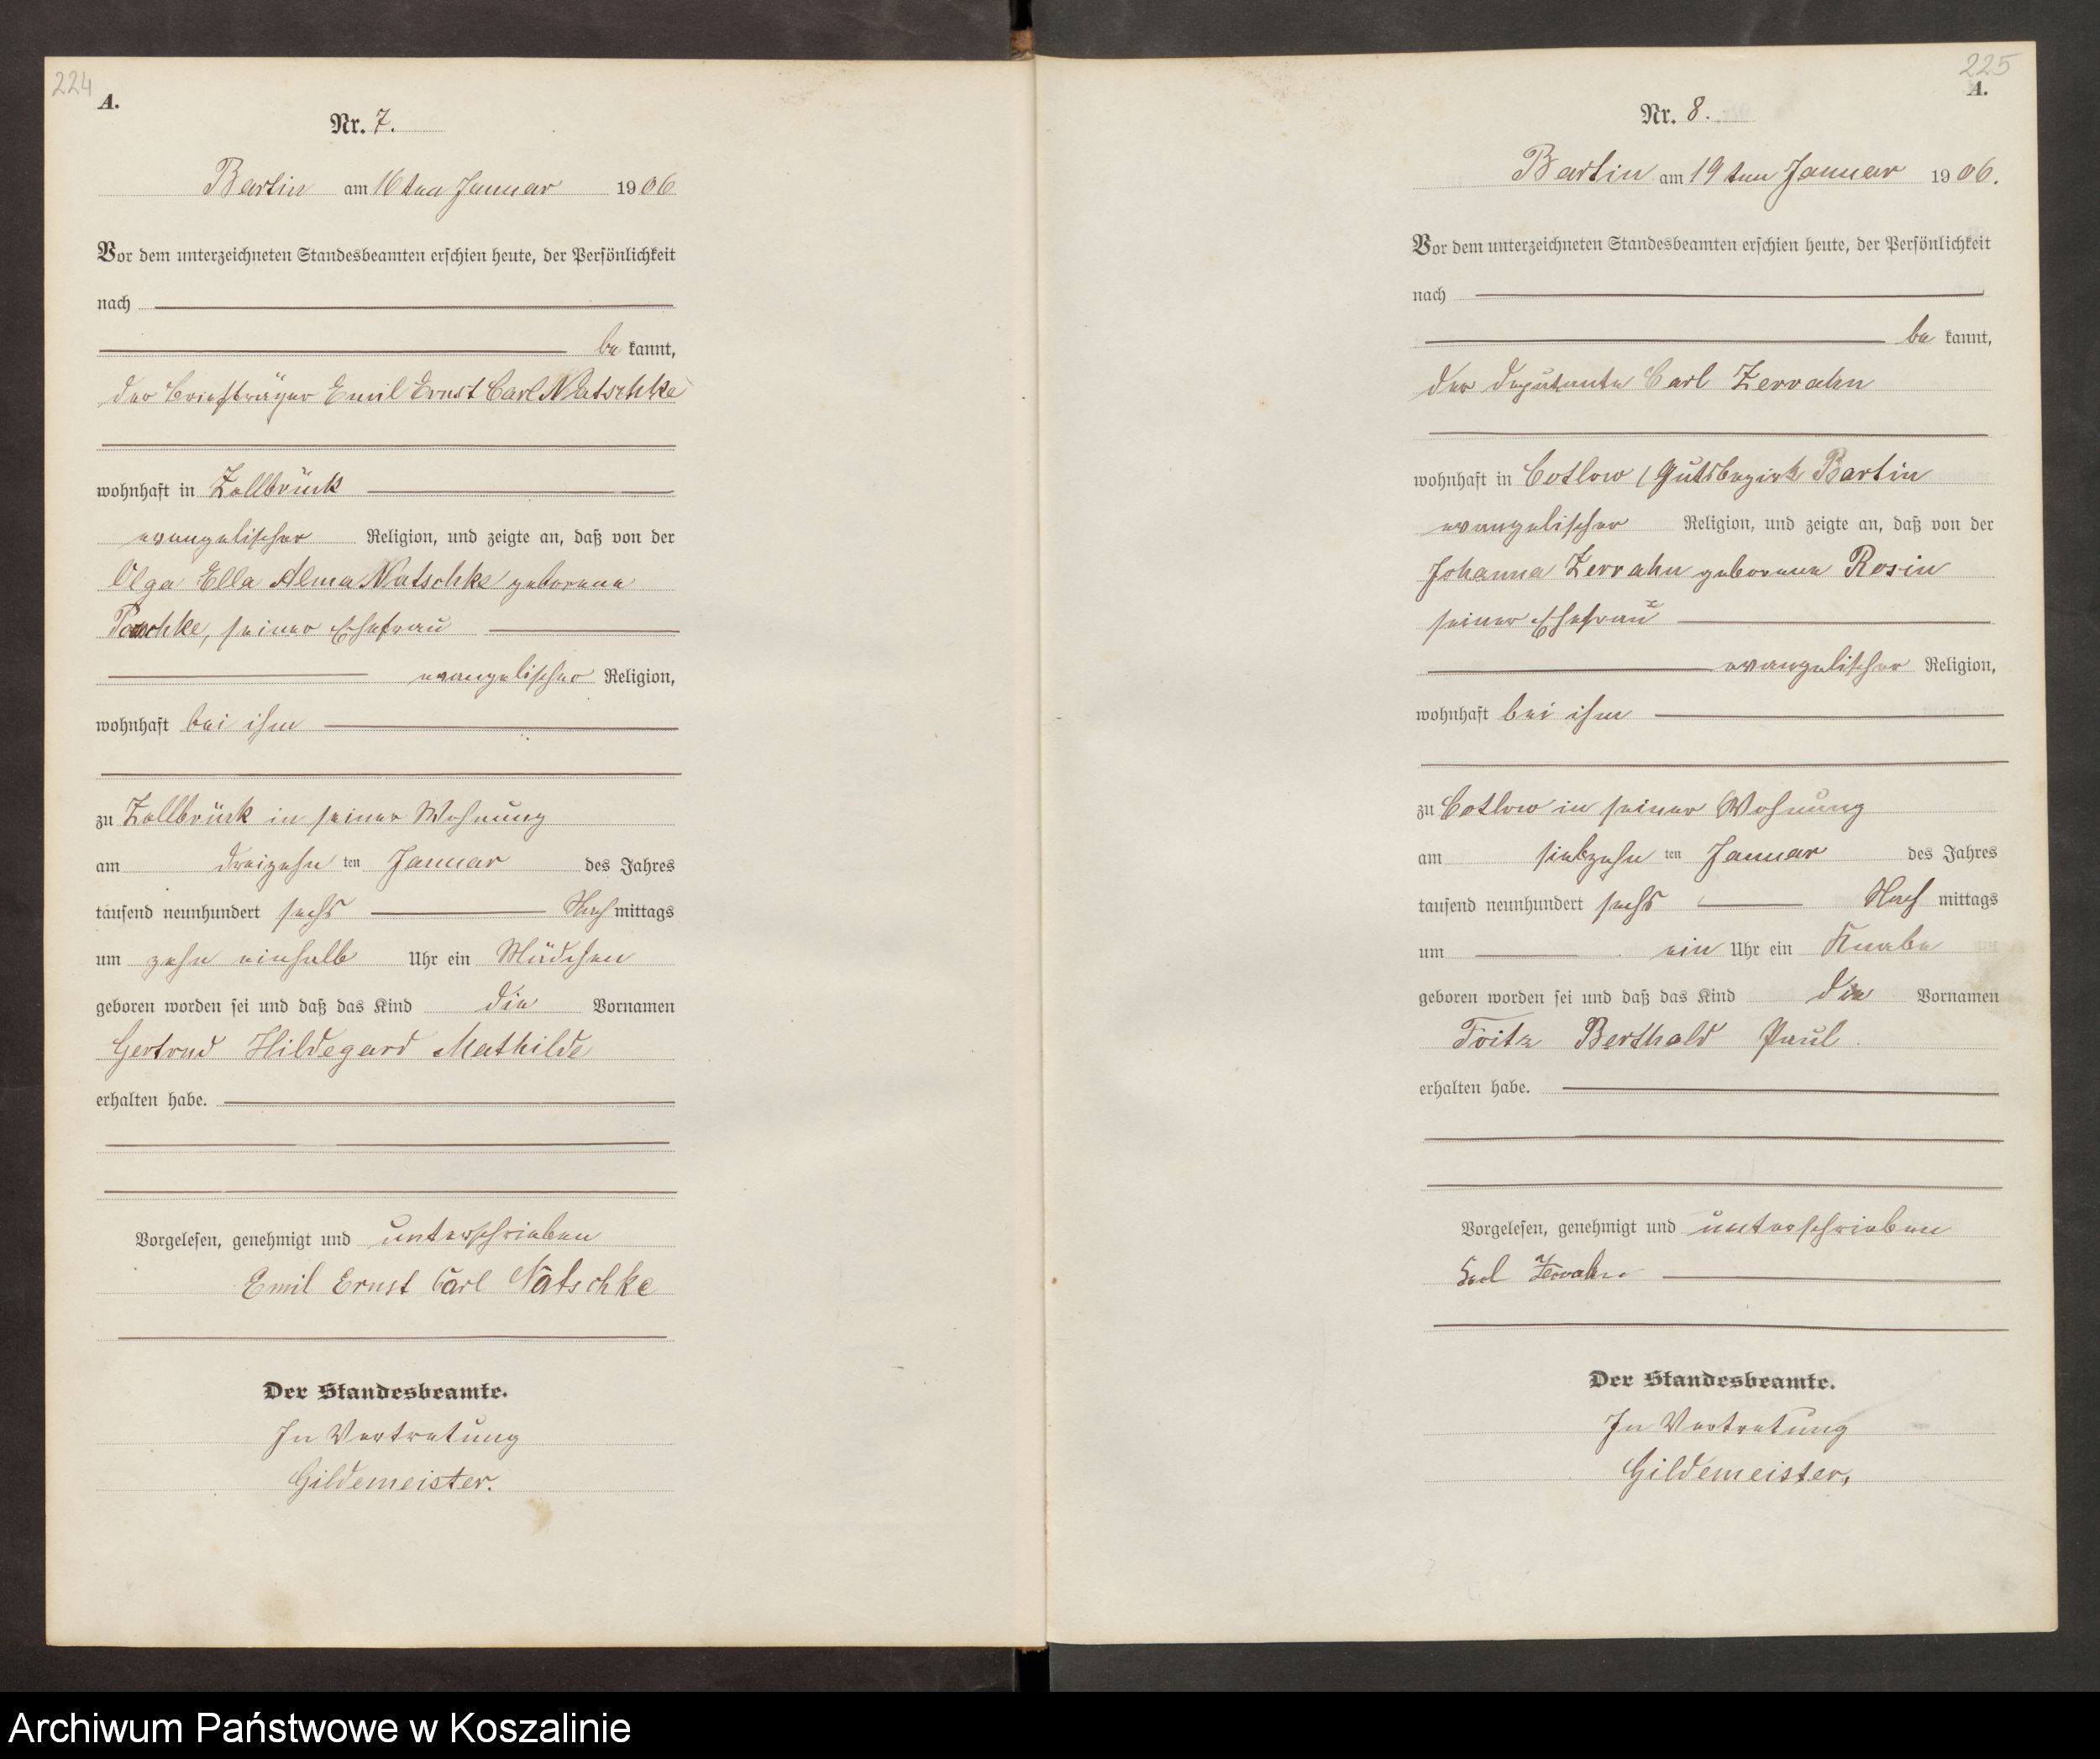 224
A.
Nr. 7.
Bartin am 16ten Januar 1906
Vor dem unterzeichneten Standesbeamten erschien heute, der Persönlichkeit
nach
be kannt,
der Briefträger Emil Ernst Carl Natschke
wohnhaft in Zollbrück
evangelischer Religion, und zeigte an, daß von der
Olga Ella Alma Natschke geborene
seiner Ehefrau
evangelischer Religion,
wohnhaft bei ihm
zu Zollbrück in seiner Wohnung
am dreizehn ten Januar des Jahres
tausend neunhundert sechs Nach mittags
um zehn einhalb Uhr ein Mädchen
geboren worden sei und daß das Kind die Vornamen
Gertrud Hildegard Mathilde
erhalten habe.
Vorgelesen, genehmigt und unterschrieben
Emil Ernst Carl Natschke
Der Standesbeamte.
In Vertretung
Gildemeister.
225
A.
Nr. 8.
Bartin am 19ten Januar 1906.
Vor dem unterzeichneten Standesbeamten erschien heute, der Persönlichkeit
nach
be kannt,
der Deputant Carl Zerrahn
wohnhaft in Cotlow, Gutsbezirk Bartin
evangelischer Religion, und zeigte an, daß von der
Johanna Zerrahn geborene Rosin
seiner Ehefrau
evangelischer Religion,
wohnhaft bei ihm
zu Cotlow in seiner Wohnung
am siebzehn ten Januar des Jahres
tausend neunhundert sechs Nach mittags
um ein Uhr ein Knabe
geboren worden sei und daß das Kind die Vornamen
Fritz Berthold Paul
erhalten habe.
Vorgelesen, genehmigt und unterschrieben
Carl Zerrahn
Der Standesbeamte.
In Vertretung
Gildemeister.
Archiwum Państwowe w Koszalinie